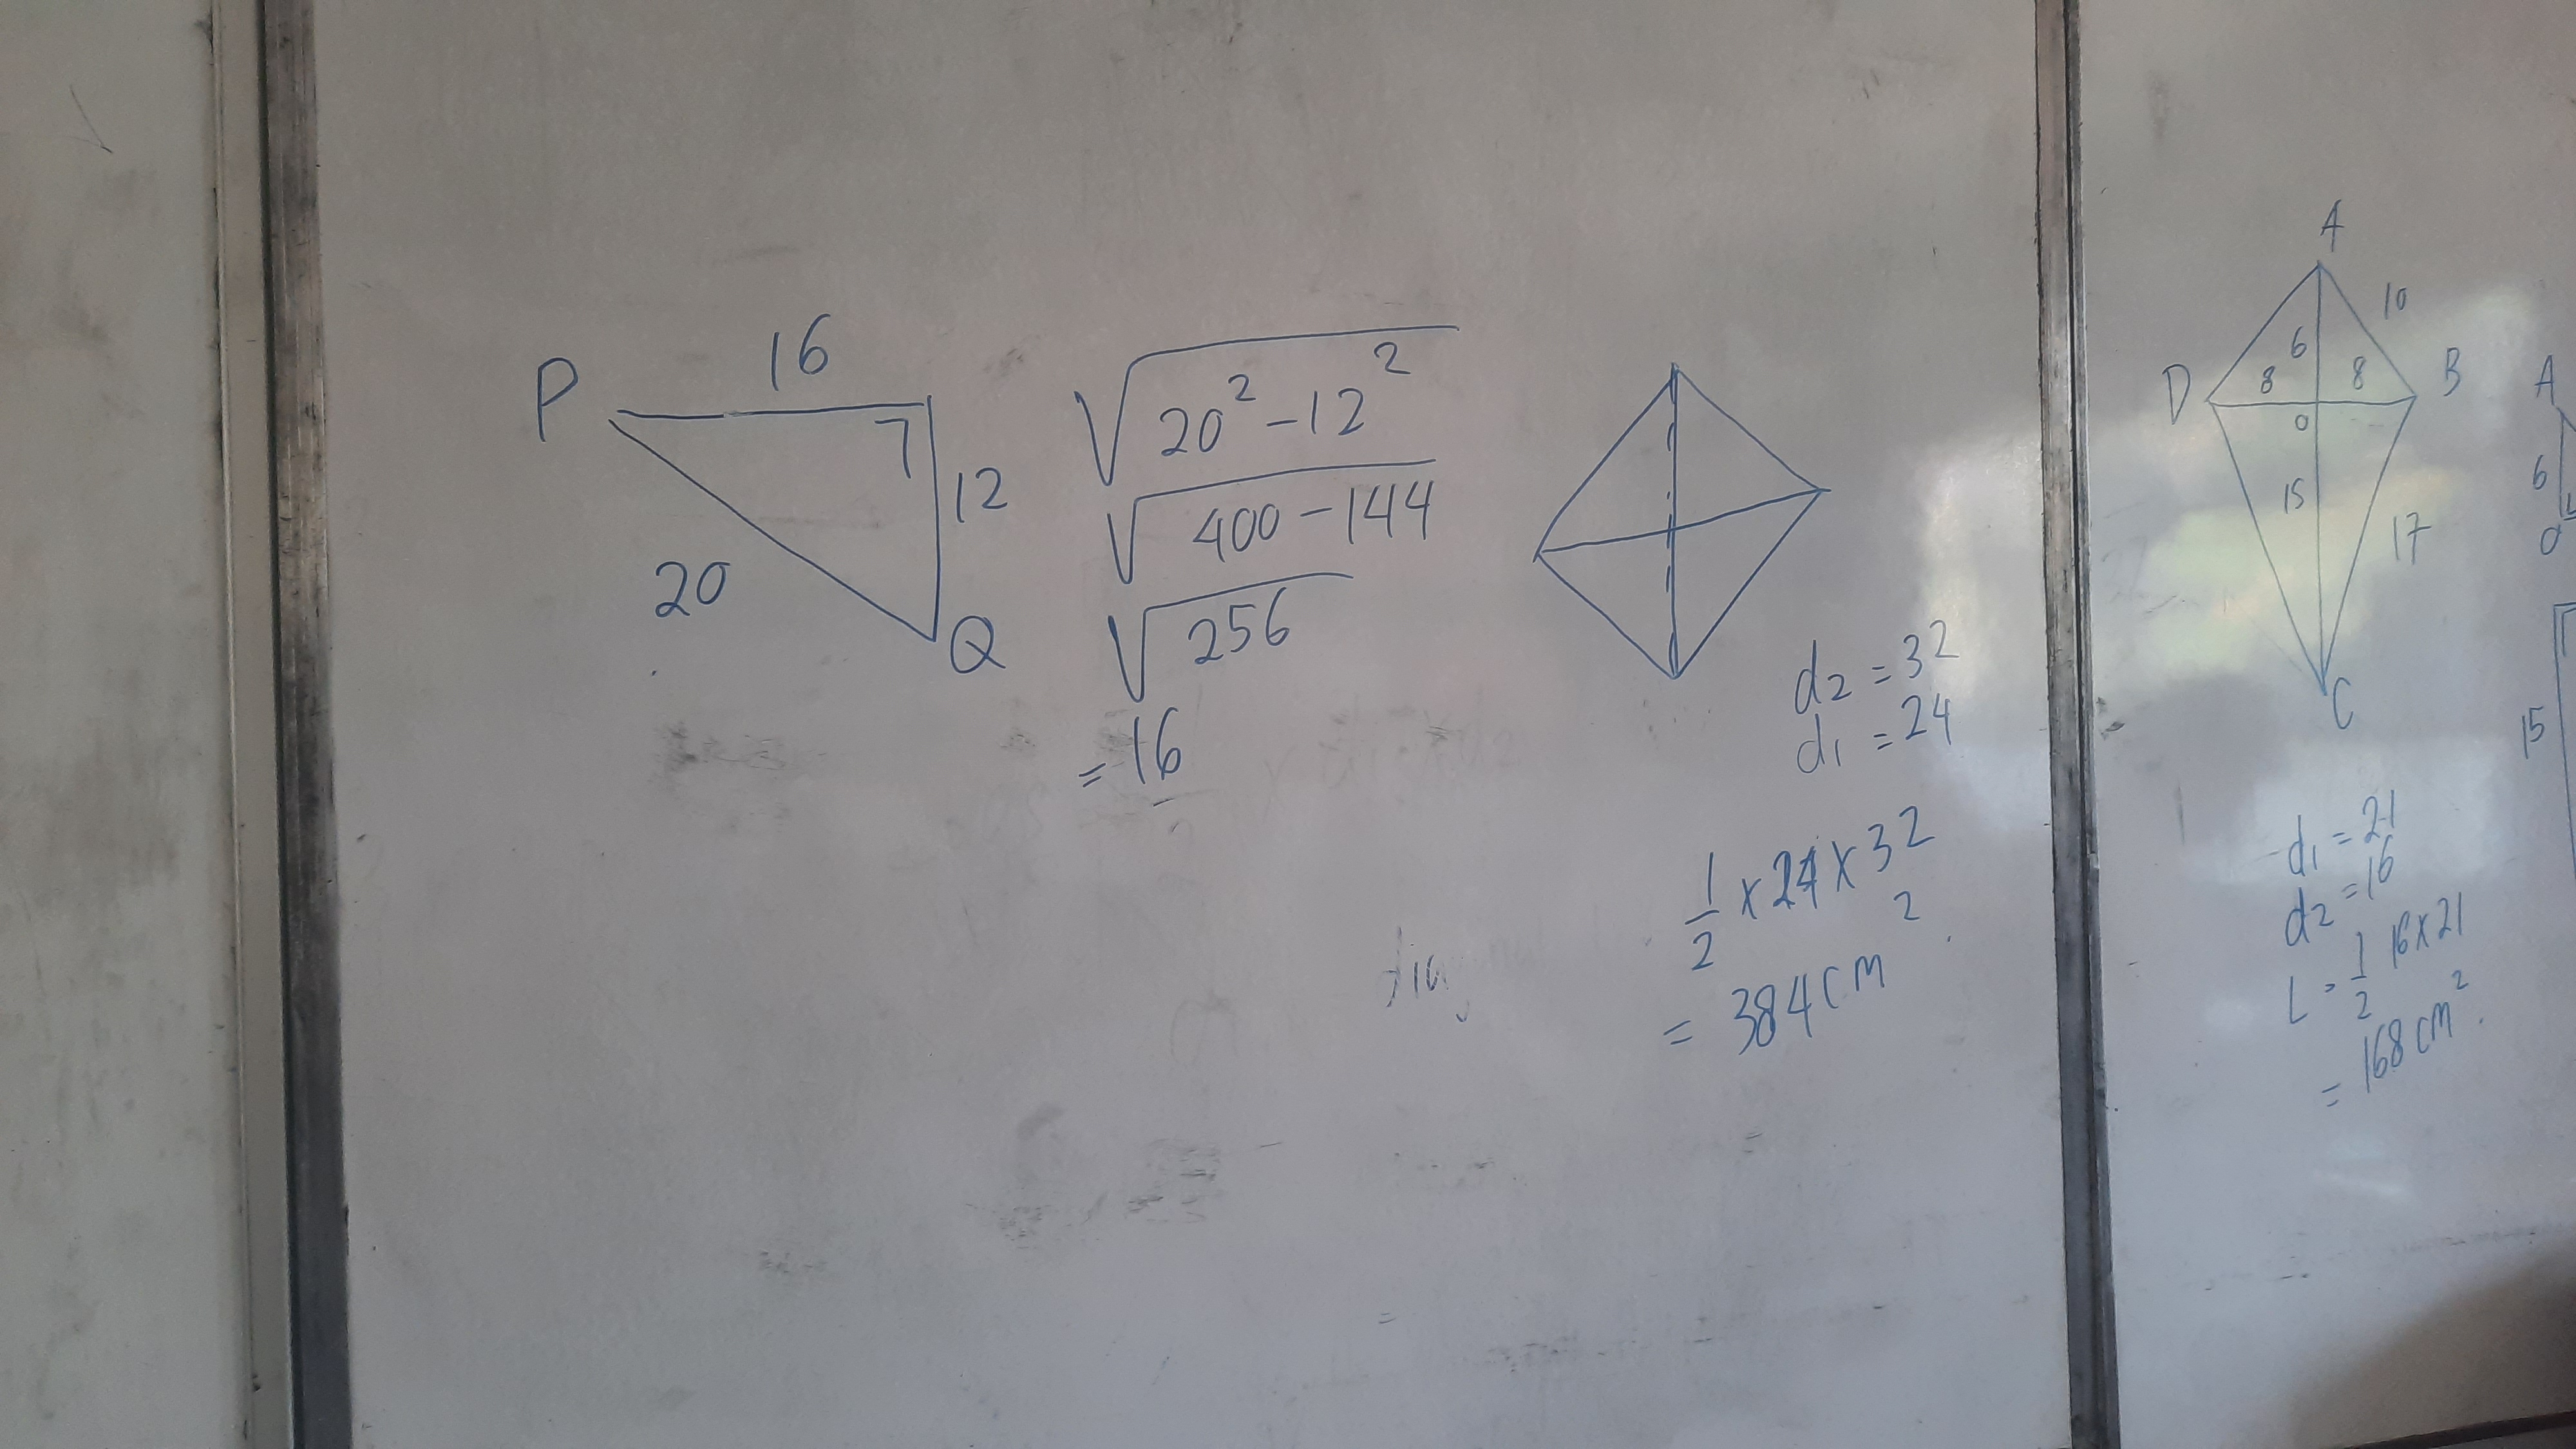 P
16
7
12
20
Q
√20² - 12²
√400 - 144
√256
= 16
d2 = 32
d1 = 24
1/2 x 24 x 32
= 384 cm²
A
10
6
D
8
8
B
0
15
17
C
d1 = 21
d2 = 16
L = 1/2 16 x 21
= 168 cm².
A
6
15